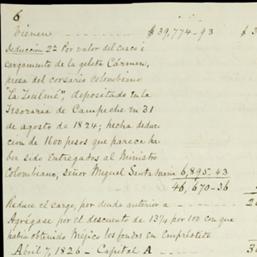 6
Vienen $39,774-93 $
Deducción 2ª Por valor del casco i
cargamento de la goleta Cármen,
presa del corsario colombiano
"La Zulmé", depositado en la
Tesorería de Campeche en 31
de agosto de 1824; hecha deduc-
cion de 1600 pesos que parece ha-
ber sido Entregados al Ministro
Colombiano, Señor Miguel Santa María 6,895-43
46,670-36
Reduce el cargo, por donde anterior a
Agrégase por el descuento de 13¼ por 100 con que
había obtenido Méjico los fondos en Empréstito
Abril 7, 1826 - Capital A